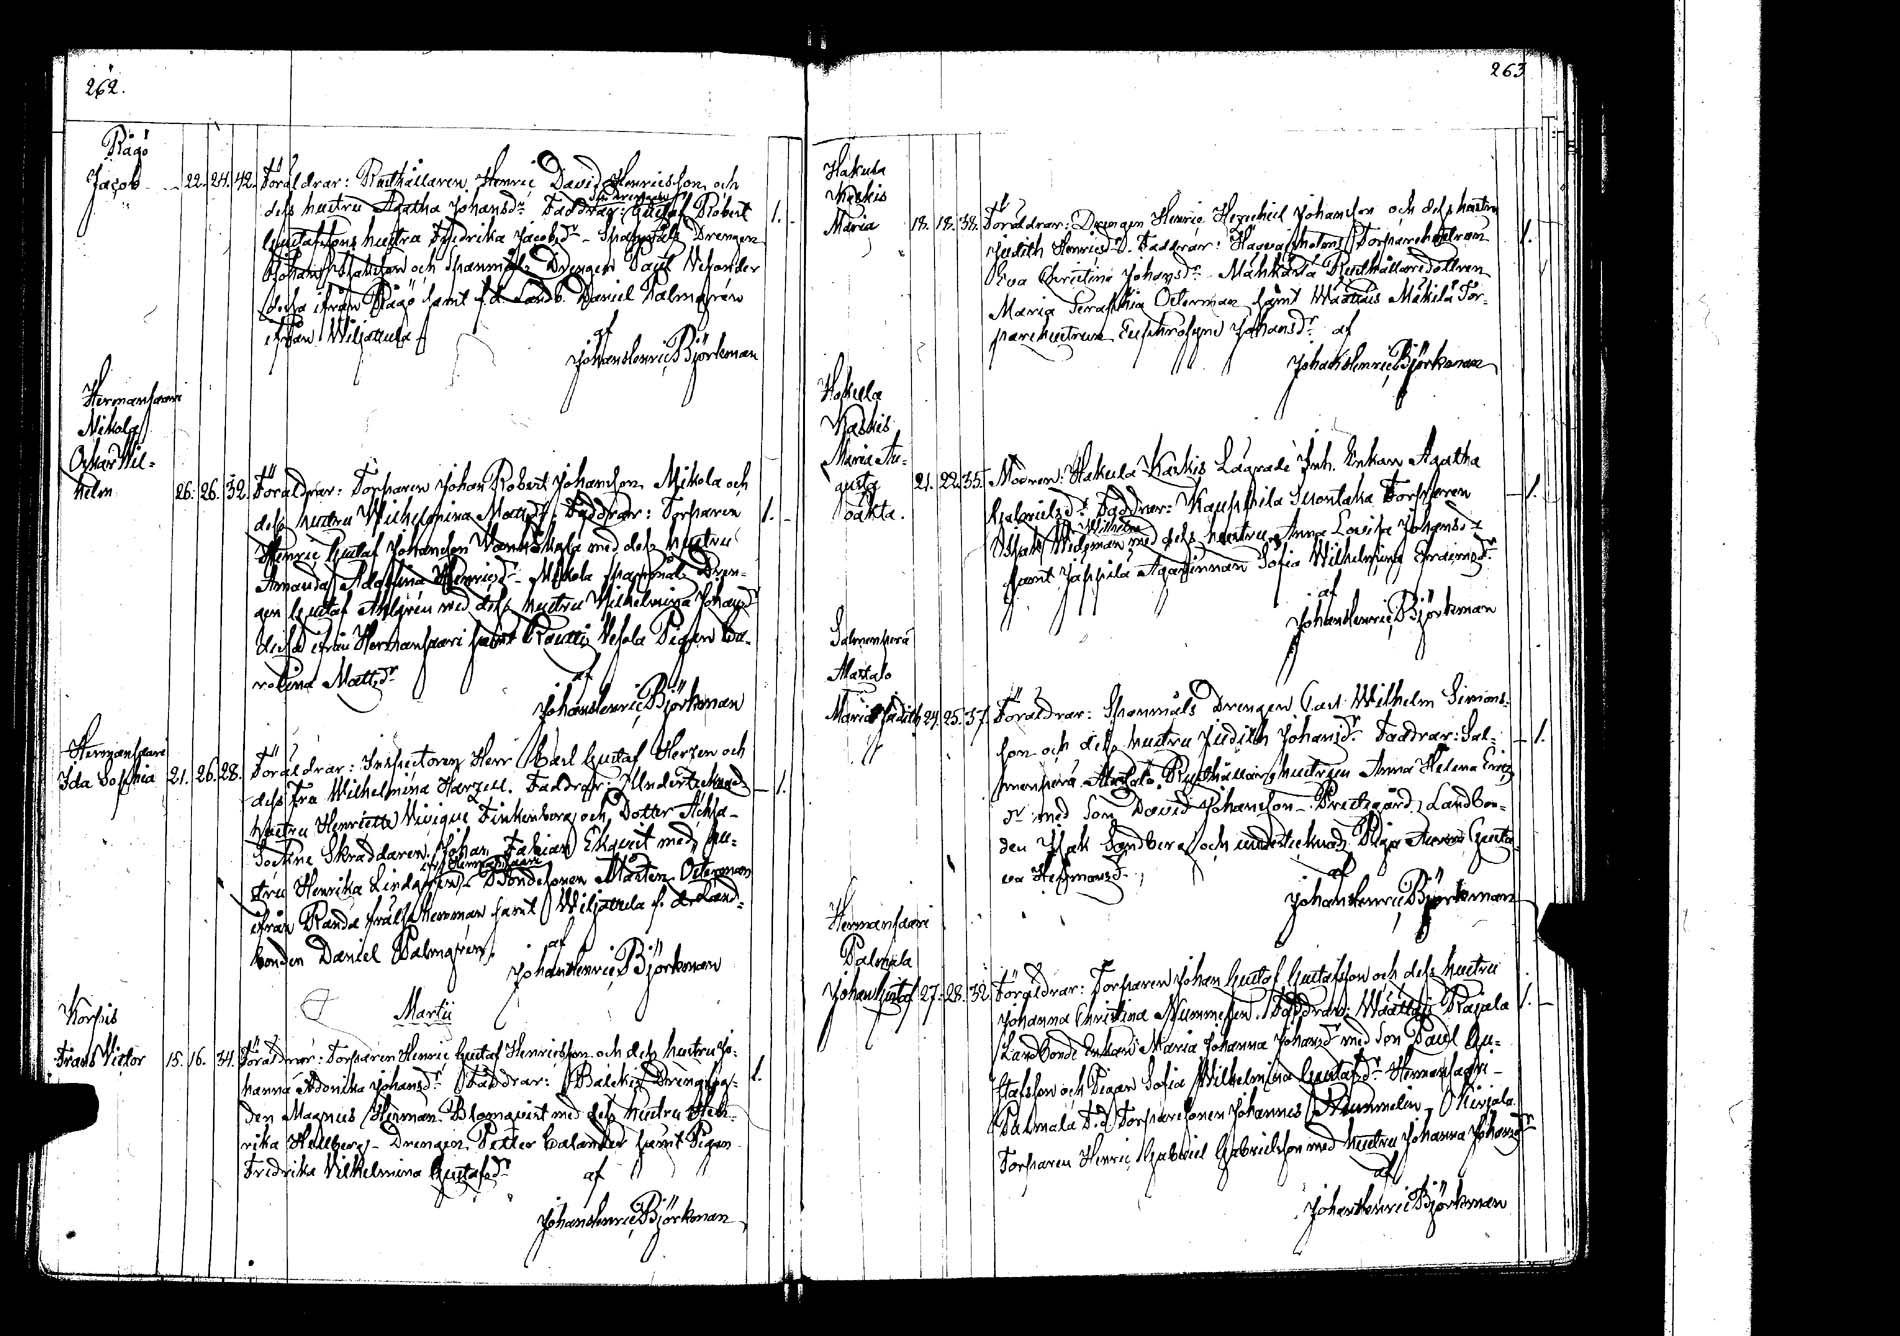 262.
Rägö
Jacob 22. 24. 42. Föräldrar: Rusthållaren Henric David Henricsson och
dess hustru Agatha Johansdr Faddrar: Gustaf Robert
Gustafssons hustru Fredrika Jacobsdr - Spanmåls Drengen
Johan Isaksson och Spanmåls Drengen Paul Vesander
dessa ifrån Rägö samt f.d. Landb. Daniel Palmgren
ifrån Wiljanula
af
Johan Henric Björkman
1.
Hermansaari
Mikola
Oskar Wil-
helm 26. 26. 32. Föräldrar: Torparen Johan Robert Johansson Mikola och
dess hustru Wilhelmina Mattsdr. Faddrar: Torparen
Henric Gustaf Johansson med dess hustru
Amanda Adolfina Henricsdr. Mikola Spanmåls Dren-
gen Gustaf Ahlgren med dess hustru Wilhelmina Johansdr
dessa ifrån Hermansaari samt Vesola Pigan Ca-
rolina Mattsdr
af
Johan Henric Björkman
1.
Hermansaari
Ida Sophia 21. 26. 28. Föräldrar: Inspectoren Herr Carl Gustaf Herzen och
dess Fru Wilhelmina Harzell. Faddrar: Undertecknads
hustru Henriette Finkenberg och Dotter
Sockne Skräddaren Johan Fabian Ekqvist med hu-
stru Henrika Lindgren - Bondesonen Mårten Osterman
ifrån Randa samt Wiljanula f.d. Land-
bonden Daniel Palmgren.
af
Johan Henric Björkman
1.
Martii
Korpis
Frans Victor 15. 16. 34. Föräldrar: Torparen Henric Gustaf Henricsson och dess hustru Jo-
hanna Adonika Johansdr Faddrar:
den Magnus Herman Blomqvist med dess hustru Hen-
rika Hellberg - Drengen Petter Calander samt Pigan
Fredrika Vilhelmina Gustafsdr
af
Johan Henric Björkman
1.
263
Hakula
Kaskis
Maria 18. 18. 38. Föräldrar: Drengen Henric Hezechiel Johansson och dess hustru
Judith Henricsdr. Faddrar: Torparehustrun
Eva Christina Johansdr - Rusthållaredottren
Maria Seraphia Osterman samt Mäkilä Tor-
parehustrun Euphrosyne Johansdr af
Johan Henric Björkman
1.
Hakula
Kaskis
Maria Au-
gusta
oäkta. 21. 22. 35. Modren: Hakula Kaskis Lägrade Inh. Enkan Agatha
Gabrielsdr. Faddrar: Kauppila Suontaka Torparen
Isak Wilhelm Widgman med dess hustru Anna Lovisa Johansdr
samt Jäppilä Sofia Wilhelmina Efraimsdr
af
Johan Henric Björkman
1.
Salmenperä
Alastalo
Maria Judith 24. 25. 37. Föräldrar: Spanmåls Drengen Carl Wilhelm Simons-
son och dess hustru Judith Johansdr Faddrar: Sal-
menperä Alastalo Rusthållarehustrun Anna Helena Erics
dr med Son David Johansson - Prestgård Landbon-
den Isak Sandberg och undertecknads Piga Gusta-
va Hermansdr.
af
Johan Henric Björkman
1.
Hermansaari
Palmala
Johan Gustaf 27. 28. 32. Föräldrar: Torparen Johan Gustaf Gustafsson och dess hustru
Johanna Christina Nummelin. Faddrar: Rajala
Landbonde Enkan Maria Johanna Johansdr med Son Paul Gu-
stafsson och Pigan Sofia Wilhelmina Gustafsdr Hermansaari -
Palmala Torparesonen Johannes Nummelin -
Torparen Henric Gabriel Gabrielsson med hustru Johanna Johansdr
af
Johan Henric Björkman
1.